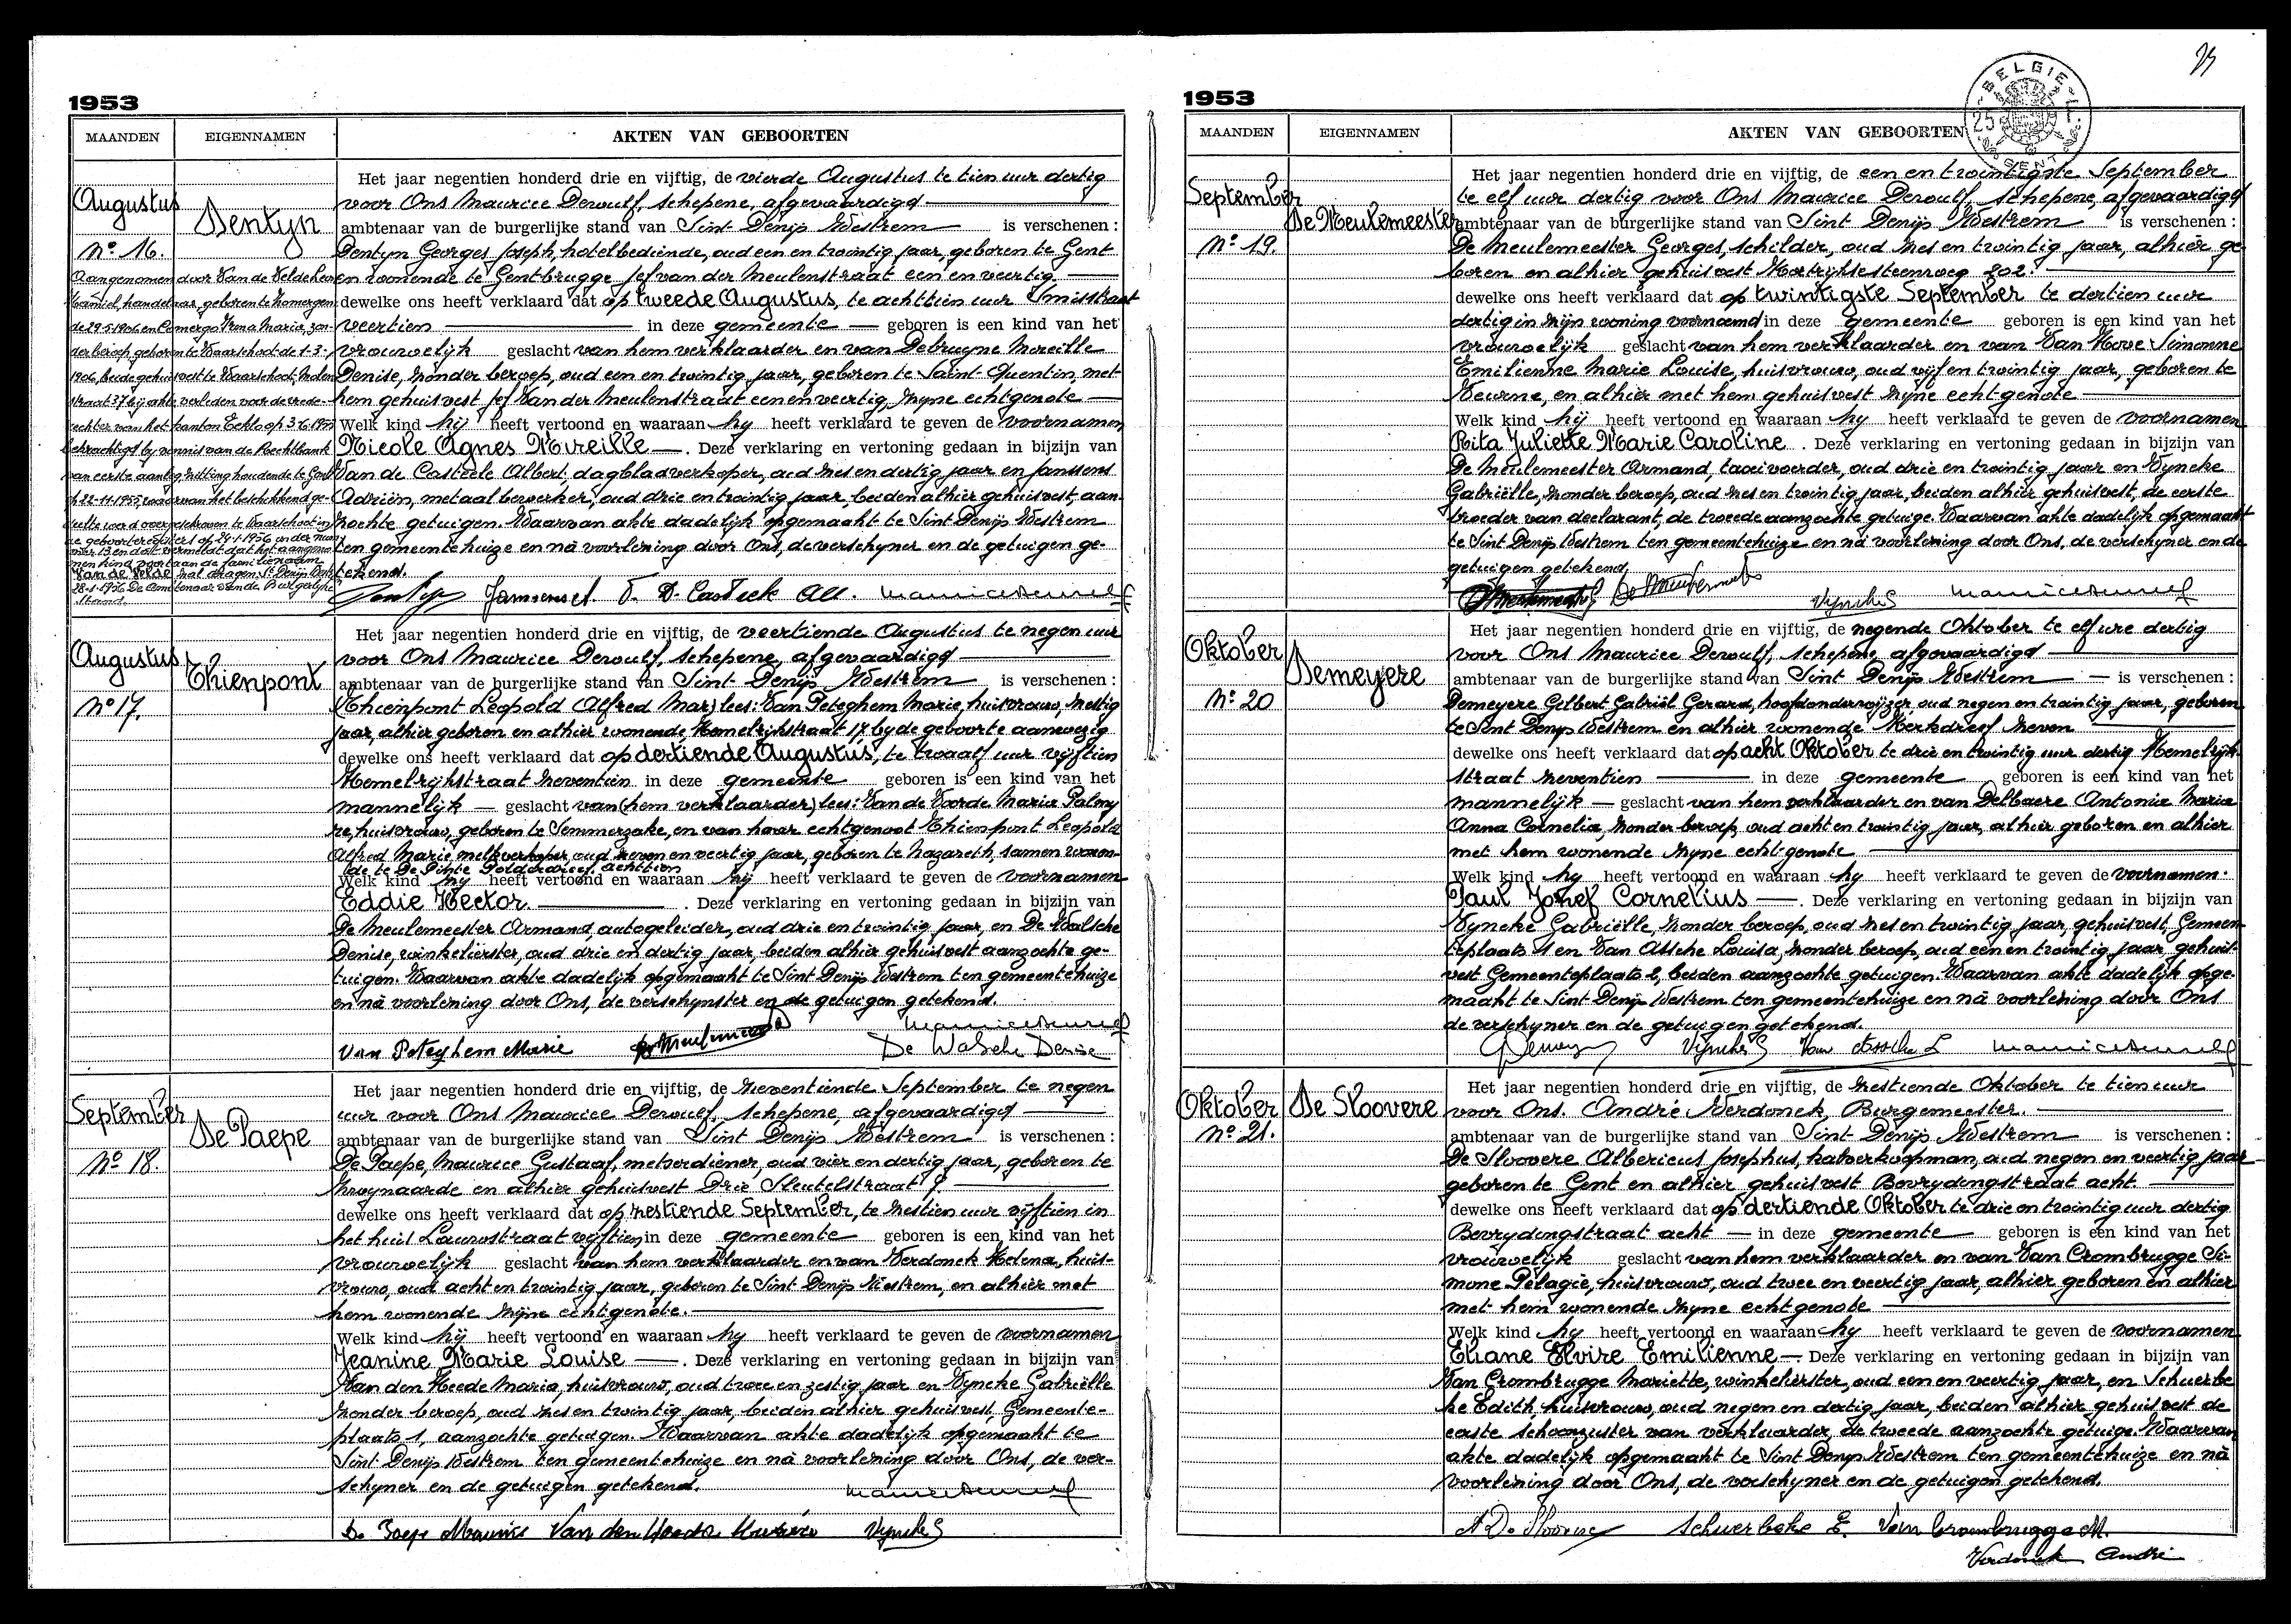 1953
MAANDEN EIGENNAMEN AKTEN VAN GEBOORTEN
Augustus
Dentyn
N° 16.
Het jaar negentien honderd drie en vijftig, de vierde Augustus te tien uur dertig
voor Ons Maurice Dewulf, schepene, afgevaardigd
ambtenaar van de burgerlijke stand van Sint Denijs Westrem is verschenen :
Dentyn Georges Joseph, hotelbediende, oud een en twintig jaar, geboren te Gent
en wonende te Gentbrugge Jef van der Meulenstraat een en veertig
dewelke ons heeft verklaard dat op tweede Augustus, te achttien uur Smisstraat
veertien in deze gemeente geboren is een kind van het
vrouwelijk geslacht van hem verklaarder en van Debruyne Mireille
Denise, zonder beroep, oud een en twintig jaar, geboren te Saint Quentin, met
hem gehuisvest Jef Van der Meulenstraat een en veertig, zijne echtgenote
Welk kind hij heeft vertoond en waaraan hy heeft verklaard te geven de voornamen
Nicole Agnes Mireille . Deze verklaring en vertoning gedaan in bijzijn van
Van de Casteele Albert, dagbladverkoper, oud zes en dertig jaar en Janssens
Adrien, metaalbewerker, oud drie en twintig jaar, beiden alhier gehuisvest, aan-
zochte getuigen. Waarvan akte dadelijk opgemaakt te Sint Denijs Westrem
ten gemeentehuize en nà voorlezing door Ons, de verschyner en de getuigen ge-
tekend.
Aangenomen door Van de Velde
Kamiel, handelaar, geboren te Zomergem
de 29-5-1906 en Comergo Irma Maria, zon-
der beroep geboren te Waarschoot de 1-3-
1906, beide gehuisvest te Waarschoot, Molen
straat 37 bij akte verleden voor de vrede-
rechter van het kanton Eeklo op 3.6.1955
bekrachtigd by vonnis van de Rechtbank
van eerste aanleg zitting houdende te Gent
op 22-11-1955, waarvan het beschikkend ge-
deelte werd overgeschreven te Waarschoot in
de geboorteregisters op 24-1-1956 onder num
mer 13 en dat vermeldt dat het aangeno-
men kind voortaan de familienaam
Van de Velde zal dragen. St Denijs West
28-1-1956 De Ambtenaar van de Burgerlijke
Stand.
Augustus
Thienpont
N° 17.
Het jaar negentien honderd drie en vijftig, de veertiende Augustus te negen uur
voor Ons Maurice Dewulf, schepene, afgevaardigd
ambtenaar van de burgerlijke stand van Sint Denijs Westrem is verschenen :
(Thienpont Leopold (Alfred Mar) lees: Van Peteghem Marie, huisvrouw, zestig
jaar, alhier geboren en alhier wonende, Hemelrijkstraat 17 by de geboorte aanwezig
dewelke ons heeft verklaard dat op dertiende Augustus, te twaalf uur vyftien
Hemelrijkstraat zeventien in deze gemeente geboren is een kind van het
mannelijk geslacht van (hem verklaarder) lees: Van de Voorde Maria Palmy
re, huisvrouw, geboren te Semmerzake, en van haar echtgenoot Thienpont Leopold
Alfred Marie, melkverkoper, oud zeven en veertig jaar, geboren te Nazareth, samen wonen-
de te De Pinte Polderdreef achttien
Welk kind hij heeft vertoond en waaraan hij heeft verklaard te geven de voornamen
Eddie Hector. . Deze verklaring en vertoning gedaan in bijzijn van
De Meulemeester Armand, autogeleider, oud drie en twintig jaar, en De Walsche
Denise, winkelierster, oud drie en dertig jaar, beiden alhier gehuisvest aanzochte ge-
tuigen. Waarvan akte dadelijk opgemaakt te Sint Denijs Westrem ten gemeentehuize
en nà voorlezing door Ons, de verschynster en de getuigen getekend.
Van Peteghem Marie De Walsche Denise
September
De Paepe
N° 18.
Het jaar negentien honderd drie en vijftig, de zeventiende September te negen
uur voor Ons Maurice Dewulf, schepene, afgevaardigd
ambtenaar van de burgerlijke stand van Sint Denijs Westrem is verschenen :
De Paepe, Maurice Gustaaf, metserdiener, oud vier en dertig jaar, geboren te
Zwynaarde en alhier gehuisvest Drie Sleutelstraat 9.
dewelke ons heeft verklaard dat op zestiende September, te zestien uur vijftien in
het huis Lauwstraat vyftien in deze gemeente geboren is een kind van het
vrouwelijk geslacht van hem verklaarder en van Verdonck Helena, huis-
vrouw, oud acht en twintig jaar, geboren te Sint Denijs Westrem, en alhier met
hem wonende zijne echtgenote.
Welk kind hij heeft vertoond en waaraan hy heeft verklaard te geven de voornamen
Jeanine Marie Louise . Deze verklaring en vertoning gedaan in bijzijn van
Van den Heede Maria, huisvrouw, oud twee en zestig jaar en Vyncke Gabriëlle
zonder beroep, oud zes en twintig jaar, beiden alhier gehuisvest, Gemeente-
plaats 1, aanzochte getuigen. Waarvan akte dadelijk opgemaakt te
Sint Denijs Westrem ten gemeentehuize en nà voorlezing door Ons, de ver-
schyner en de getuigen getekend.
De Paepe Maurice Van den Heede Vyncke G
1953
MAANDEN EIGENNAMEN AKTEN VAN GEBOORTEN
BELGIE
GENT
September
De Meulemeester
N° 19.
Het jaar negentien honderd drie en vijftig, de een en twintigste September
te elf uur dertig voor Ons Maurice Dewulf, schepene, afgevaardigd
ambtenaar van de burgerlijke stand van Sint Denijs Westrem is verschenen :
De Meulemeester Georges, schilder, oud zes en twintig jaar, alhier ge-
boren en alhier gehuisvest Kortrijksesteenweg 202.
dewelke ons heeft verklaard dat op twintigste September te dertien uur
dertig in zijn woning voornoemd in deze gemeente geboren is een kind van het
vrouwelijk geslacht van hem verklaarder en van Van Hove Simonne
Emilienne Marie Louise, huisvrouw, oud vijf en twintig jaar, geboren te
Deurne, en alhier met hem gehuisvest zijne echtgenote
Welk kind hij heeft vertoond en waaraan hy heeft verklaard te geven de voornamen
Rita Juliette Marie Caroline . Deze verklaring en vertoning gedaan in bijzijn van
De Meulemeester Armand, taxivoerder, oud drie en twintig jaar en Vyncke
Gabriëlle, zonder beroep, oud zes en twintig jaar, beiden alhier gehuisvest, de eerste
broeder van declarant, de tweede aanzochte getuige. Waarvan akte dadelijk opgemaakt
te Sint Denijs Westrem ten gemeentehuize en nà voorlezing door Ons, de verschyner en de
getuigen getekend.
Vyncke G
Oktober
Demeyere
N° 20
Het jaar negentien honderd drie en vijftig, de negende Oktober te elf ure dertig
voor Ons Maurice Dewulf, schepene, afgevaardigd
ambtenaar van de burgerlijke stand van Sint Denijs Westrem is verschenen :
Demeyere Gilbert Gabriël Gerard, hoofdonderwijzer, oud negen en twintig jaar, geboren
te Sint Denijs Westrem en alhier wonende Kerkdreef zeven
dewelke ons heeft verklaard dat op acht Oktober te drie en twintig uur dertig Hemelrijk-
straat zeventien in deze gemeente geboren is een kind van het
mannelijk geslacht van hem verklaarder en van Delbaere Antonia Maria
Anna Cornelia, zonder beroep, oud acht en twintig jaar, alhier geboren en alhier
met hem wonende zijne echtgenote
Welk kind hy heeft vertoond en waaraan hy heeft verklaard te geven de voornamen.
Paul Jozef Cornelius . Deze verklaring en vertoning gedaan in bijzijn van
Vyncke Gabriëlle, zonder beroep, oud zes en twintig jaar, gehuisvest, Gemeen-
teplaats 1 en Van Assche Louisa, zonder beroep, oud een en twintig jaar, gehuis-
vest Gemeenteplaats 2, beiden aanzochte getuigen. Waarvan akte dadelijk opge-
maakt te Sint Denijs Westrem ten gemeentehuize en nà voorlezing door Ons
de verschyner en de getuigen getekend.
Vyncke G Van Assche L
Oktober
De Sloovere
N° 21.
Het jaar negentien honderd drie en vijftig, de zestiende Oktober te tien uur
voor Ons. André Verdonck, Burgemeester.
ambtenaar van de burgerlijke stand van Sint Denijs Westrem is verschenen :
De Sloovere Albericus Josephus, kalverkoopman, oud negen en veertig jaar
geboren te Gent en alhier gehuisvest Bevrydingstraat acht.
dewelke ons heeft verklaard dat op dertiende Oktober te drie en twintig uur dertig
Bevrydingstraat acht in deze gemeente geboren is een kind van het
vrouwelijk geslacht van hem verklaarder en van Van Crombrugge Si-
mone Pelagie, huisvrouw, oud twee en veertig jaar, alhier geboren en alhier
met hem wonende zijne echtgenote
Welk kind hy heeft vertoond en waaraan hy heeft verklaard te geven de voornamen
Eliane Elvire Emilienne . Deze verklaring en vertoning gedaan in bijzijn van
Van Crombrugge Mariette, winkelierster, oud een en veertig jaar, en Schuerbe
ke Edith, huisvrouw, oud negen en dertig jaar, beiden alhier gehuisvest de
eerste schoonzuster van verklaarder, de tweede aanzochte getuige. Waarvan
akte dadelijk opgemaakt te Sint Denijs Westrem ten gemeentehuize en nà
voorlezing door Ons, de verschyner en de getuigen getekend.
A De Sloovere Schuerbeke E. Van Crombrugge M.
Verdonck André